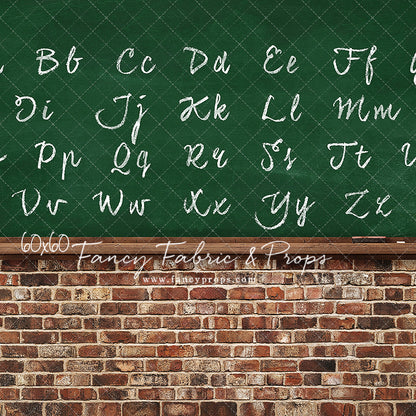 Bb Cc Dd Ee Ff
Ii Jj Kk Ll Mm
Pp Qq Rr Ss Tt
Vv Ww Xx Yy Zz
60x60
Fancy Fabric & Props
www.fancyprops.com